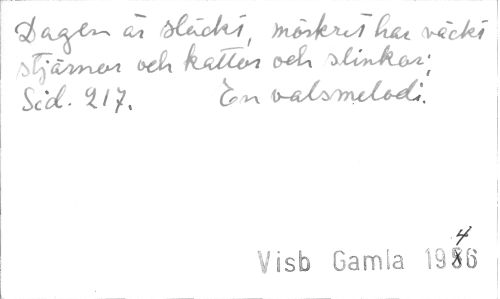 Dagen är släckt, mörkret har väckt
stjärnor och kattor och slinkor;
Sid. 217. En valsmelodi.
Visb Gamla 1946